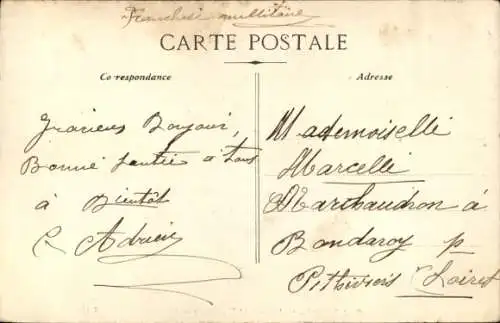 Franchise millitaire
CARTE POSTALE
Correspondance
Adresse
Gracieux Bonjour,
Bonne santée a tous
à Bientôt
Adrien
Mademoiselle
Marcelle
Marchaudon à
Bondaroy p
Pithiviers Loiret